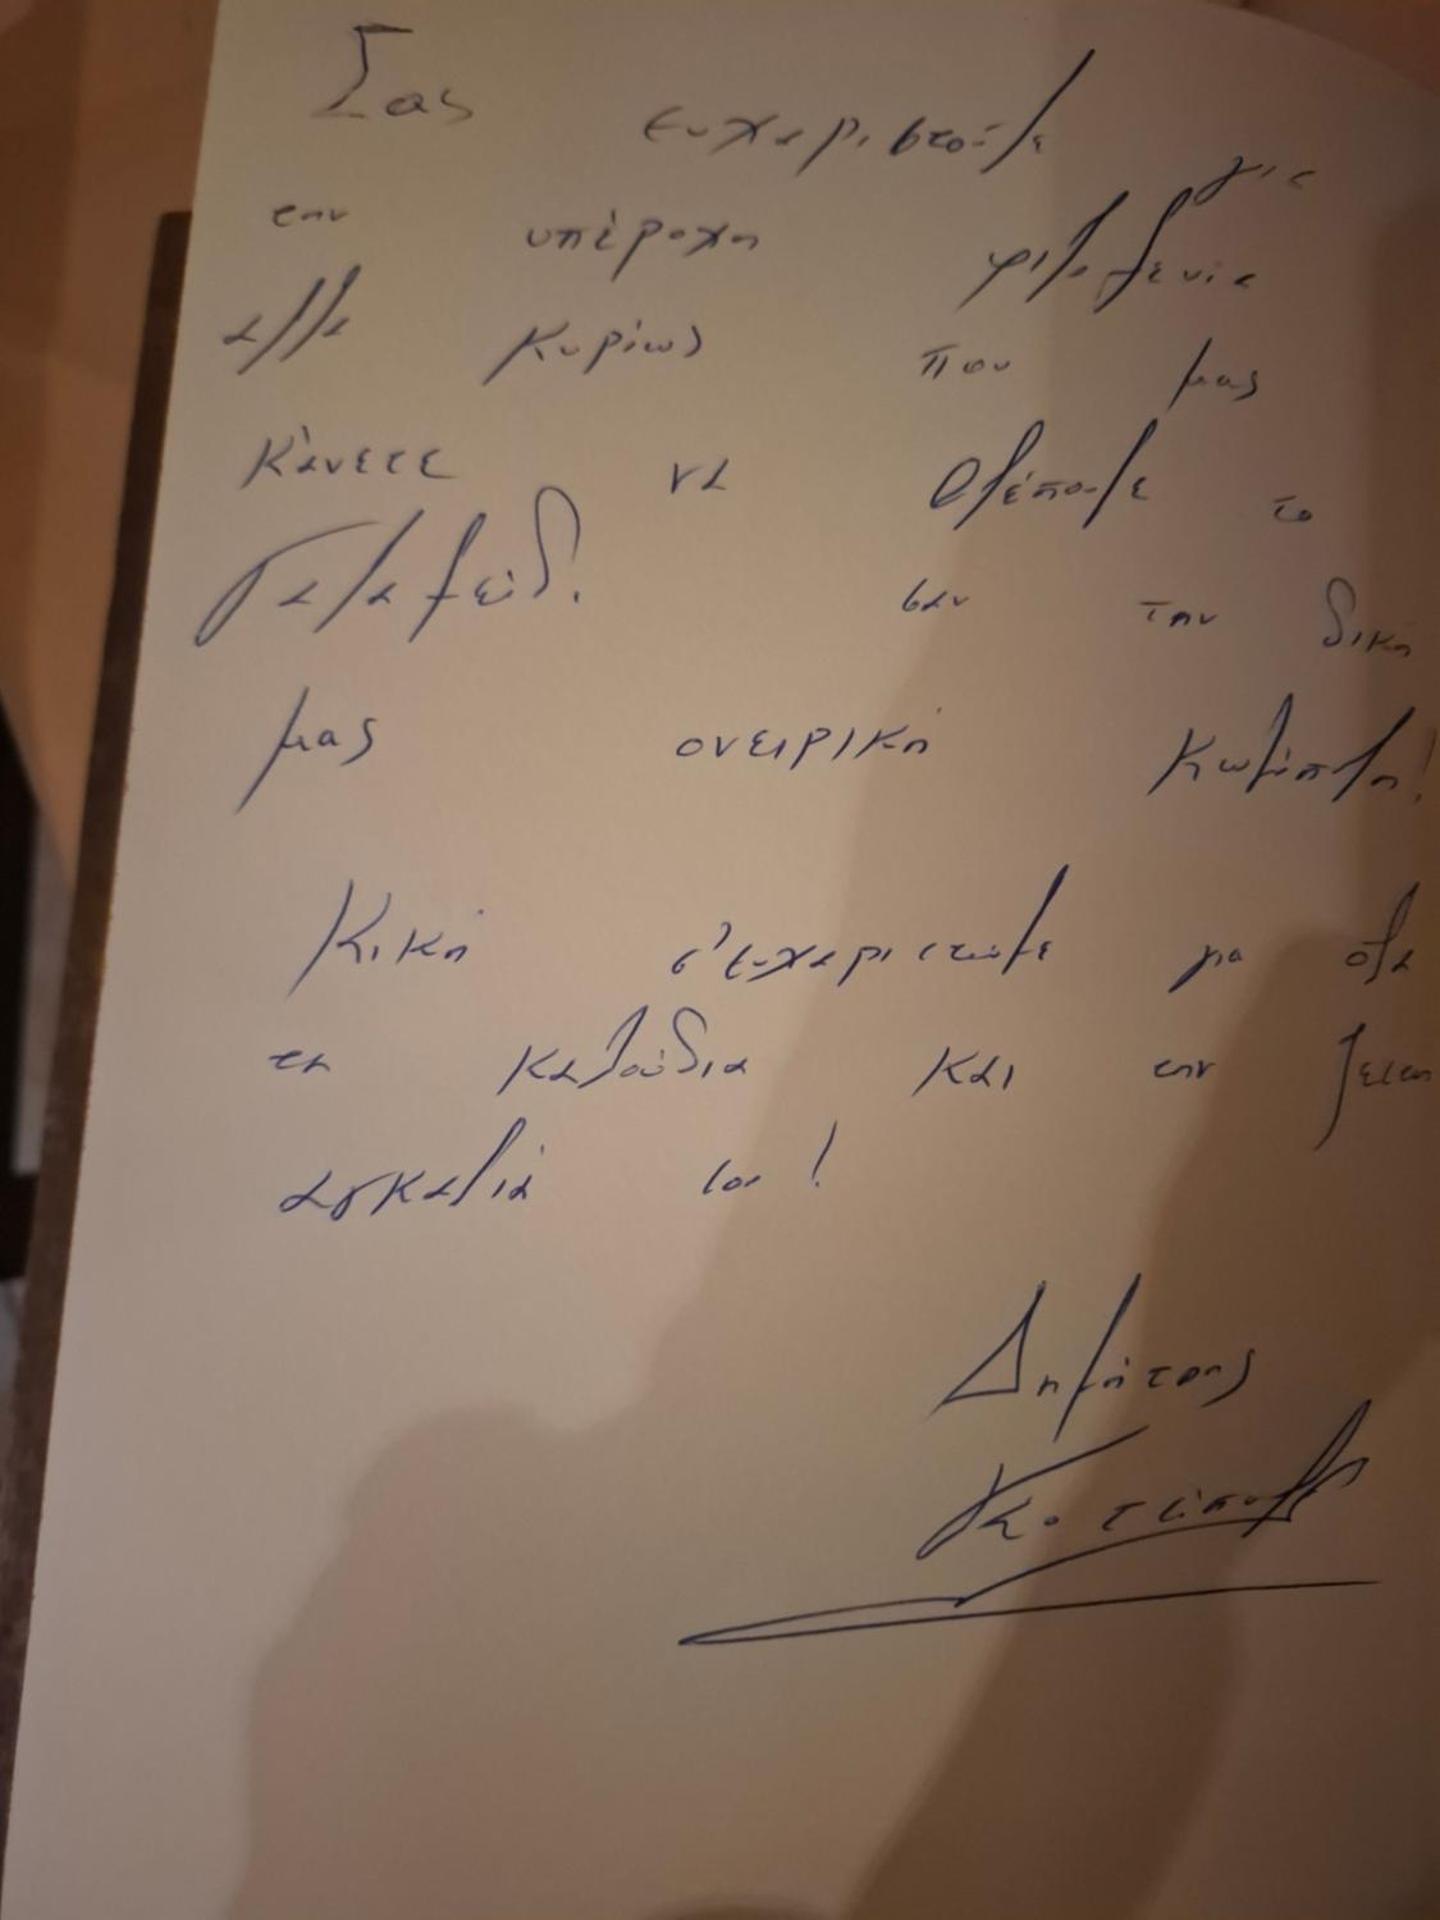 Σας ευχαριστούμε για
την υπέροχη φιλοξενία
αλλά κυρίως που μας
κάνετε να βλέπουμε το
Γαλαξείδ. σαν την δική
μας ονειρική Κωμόπολη!
Κική σ'ευχαριστούμε για όλα
τα καλούδια και την ζεστη
αγκαλιά σου!
Δημήτρης